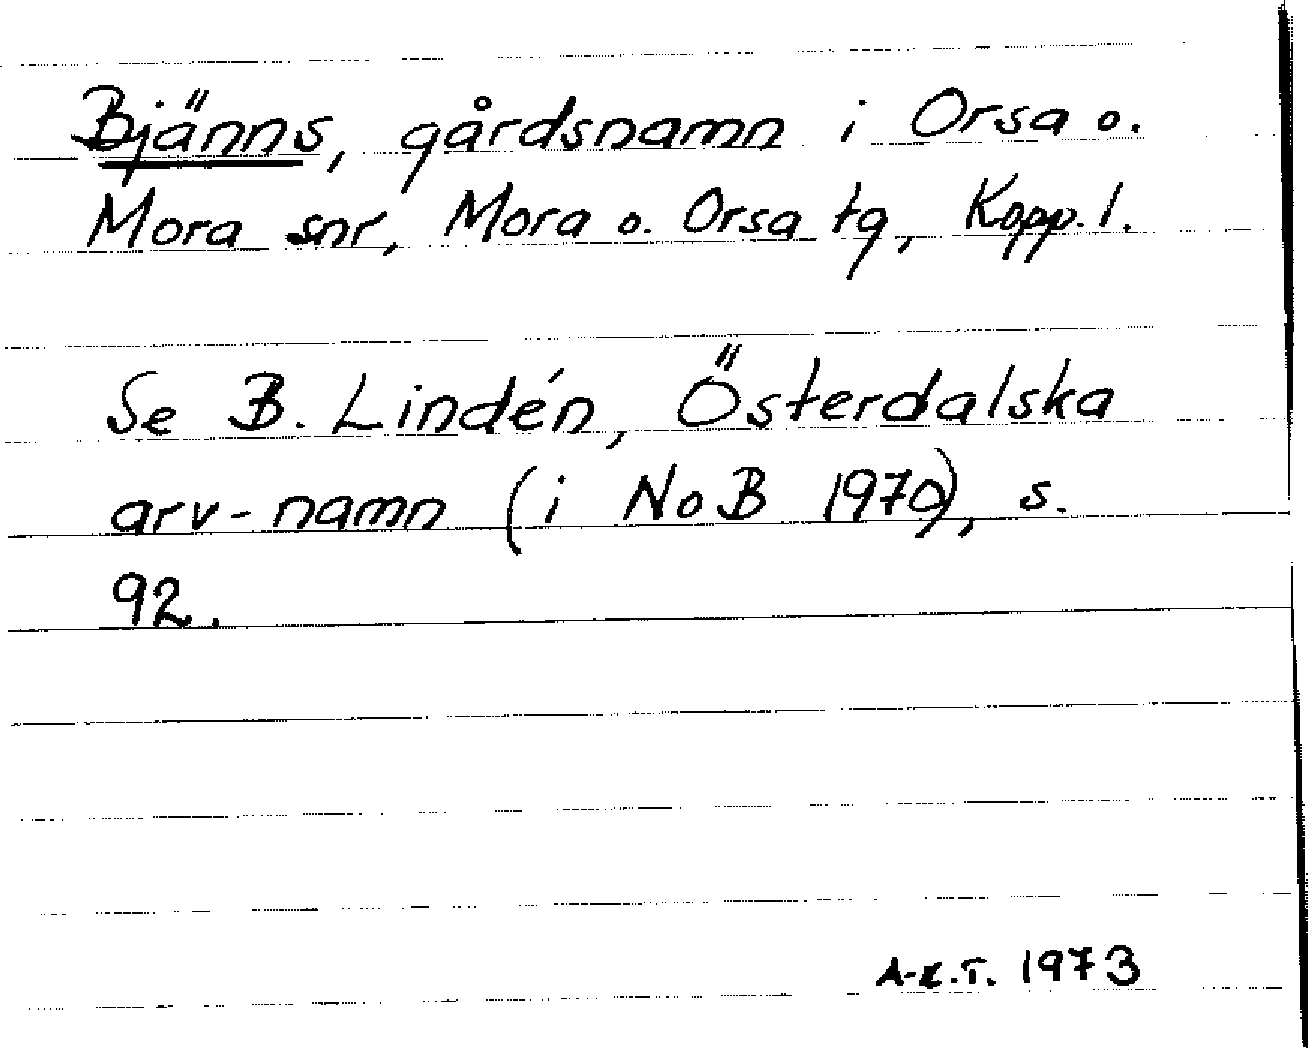 Bjänns, gårdsnamn i Orsa o.
Mora snr, Mora o. Orsa tg, Kopp. l.
Se B. Lindén, Österdalska
arv-namn (i NoB 1970), s.
92.
1973